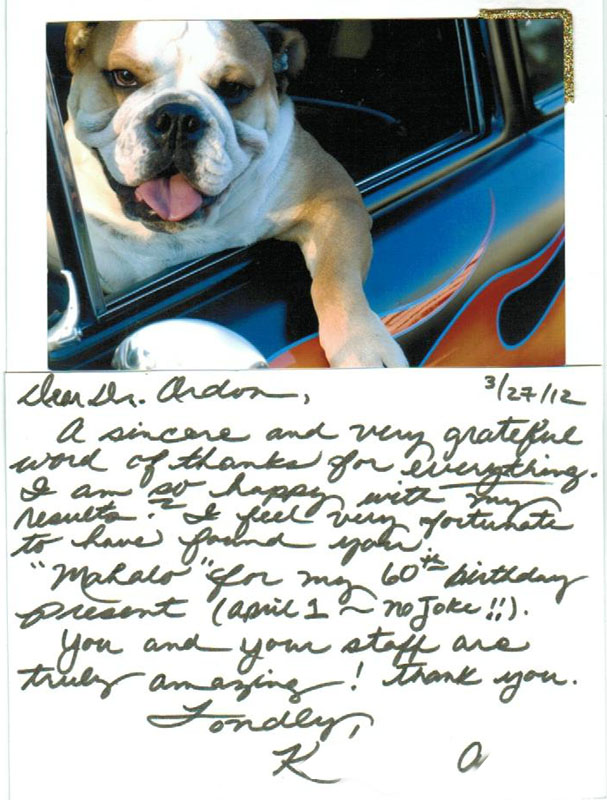 Dear Dr. Ordon,
3/27/12
A sincere and very grateful
word of thanks for everything.
I am so happy with my
results. I feel very fortunate
to have found you.
"Mahalo" for my 60th birthday
present (April 1 ~ no joke!!).
You and your staff are
truly amazing! Thank you.
Fondly,
K A